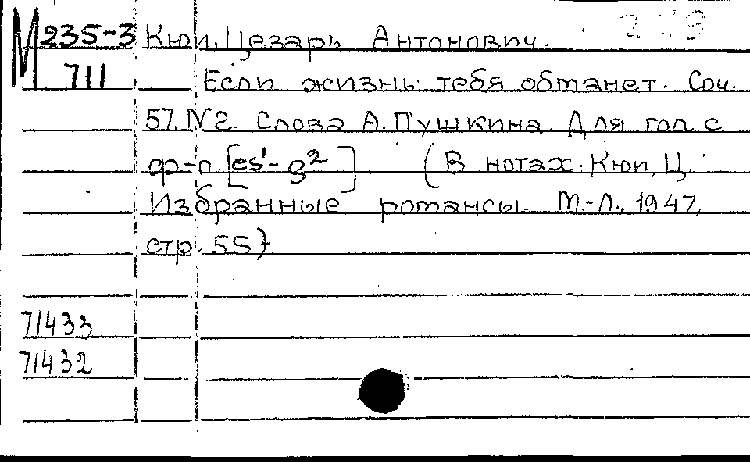 М 235-3 Кюи, Цезарь Антонович.
711 Если жизнь тебя обманет. Соч.
57. №2. Слова А. Пушкина. Для гол. с
ф-п [es'-g²] (В нотах: Кюи, Ц.
Избранные романсы. М.-Л., 1947,
стр. 55)
71433
71432